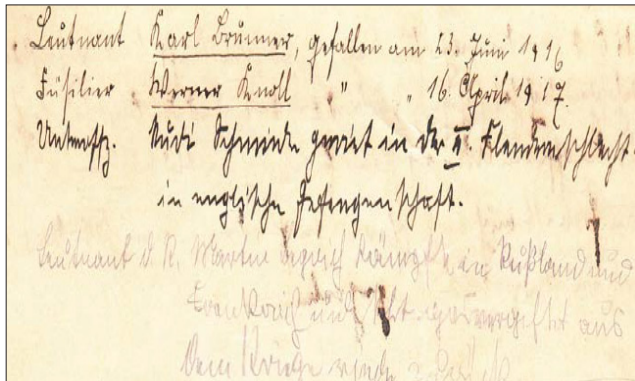 Leutnant Karl Brunner, gefallen am 23. Juni 1916
Füsilier Werner Knoll " " 16. April 1917.
Unteroffz. Rudi Schmiede geriet in der II. Flandernschlacht
in englische Gefangenschaft.
Leutnant d. R. Martin kämpft in Rußland und
Frankreich und gasvergiftet aus
dem Kriege